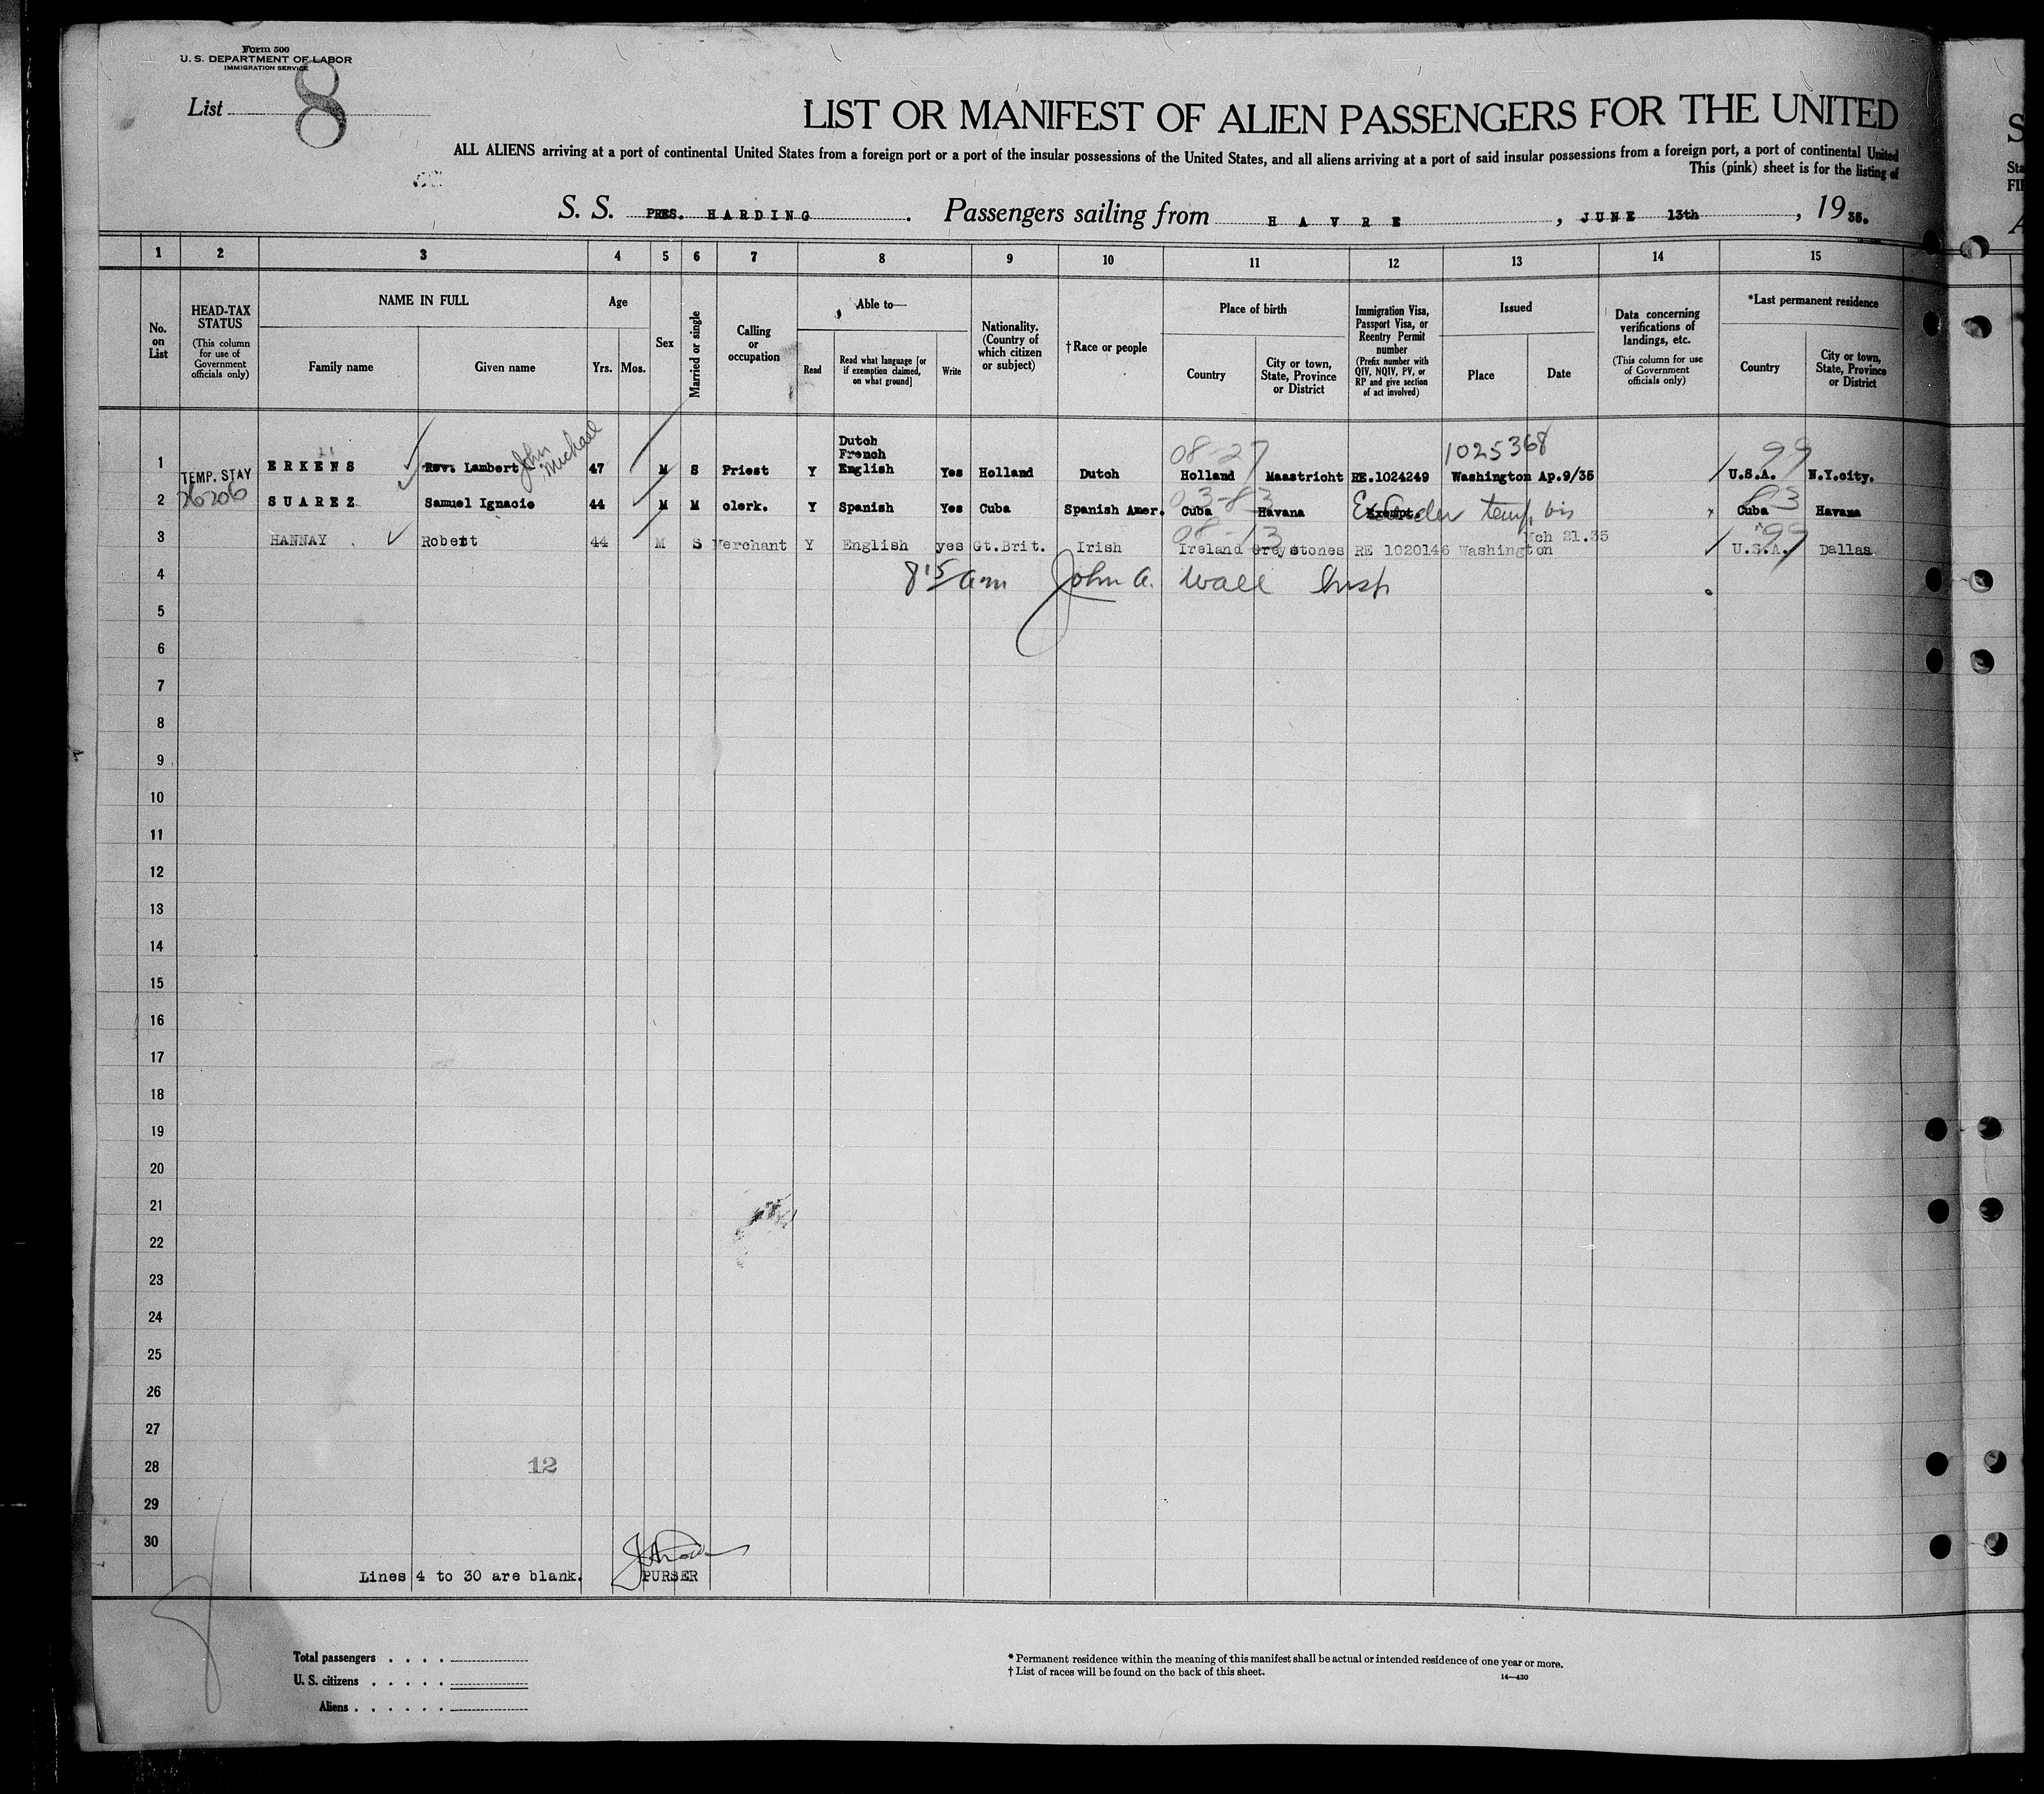 Form 500
U. S. DEPARTMENT OF LABOR
IMMIGRATION SERVICE
List 8
LIST OR MANIFEST OF ALIEN PASSENGERS FOR THE UNITED
ALL ALIENS arriving at a port of continental United States from a foreign port or a port of the insular possessions of the United States, and all aliens arriving at a port of said insular possessions from a foreign port, a port of continental United
This (pink) sheet is for the listing of
S. S. PRES. HARDING. Passengers sailing from HAVRE, JUNE 13th, 1935.
1 2 3 4 5 6 7 8 9 10 11 12 13 14 15
No. on List
HEAD-TAX STATUS (This column for use of Government officials only)
NAME IN FULL
Family name Given name
Age
Yrs. Mos.
Sex
Married or single
Calling or occupation
Able to—
Read Read what language [or if exemption claimed, on what ground] Write
Nationality. (Country of which citizen or subject)
†Race or people
Place of birth
Country City or town, State, Province or District
Immigration Visa, Passport Visa, or Reentry Permit number (Prefix number with QIV, NQIV, PV, or RP and give section of act involved)
Issued
Place Date
Data concerning verifications of landings, etc. (This column for use of Government officials only)
*Last permanent residence
Country City or town, State, Province or District
John Michael
Dutch
French
08-27 1025368 99
1 TEMP. STAY ERKENS Rev. Lambert 47 M S Priest Y English Yes Holland Dutch Holland Maastricht RE.1024249 Washington Ap.9/35 U.S.A. N.Y.city.
03-83 83
2 26206 SUAREZ Samuel Ignacio 44 M M clerk. Y Spanish Yes Cuba Spanish Amer. Cuba Havana Exempt. temp. vis Cuba Havana
08-13 Mch 21.35 99
3 HANNAY Robert 44 M S Merchant Y English yes Gt.Brit. Irish Ireland Greystones RE 1020146 Washington U.S.A. Dallas
4 8 15 am John A. Wall Insp
5
6
7
8
9
10
11
12
13
14
15
16
17
18
19
20
21
22
23
24
25
26
27
28 12
29
30
Lines 4 to 30 are blank. PURSER
Total passengers . . . .
U. S. citizens . . . . .
Aliens . . . . . .
* Permanent residence within the meaning of this manifest shall be actual or intended residence of one year or more.
† List of races will be found on the back of this sheet.
14—430
S
Sta
FI
A